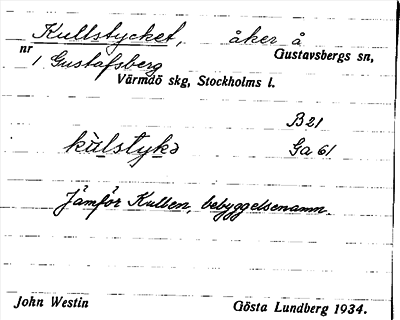 Kullstycket, åker å
nr 1 Gustafsberg Gustavsbergs sn,
Värmdö skg, Stockholms l.
B 21
kùlstykə Ga 61
Jämför Kullen, bebyggelsenamn.
John Westin Gösta Lundberg 1934.